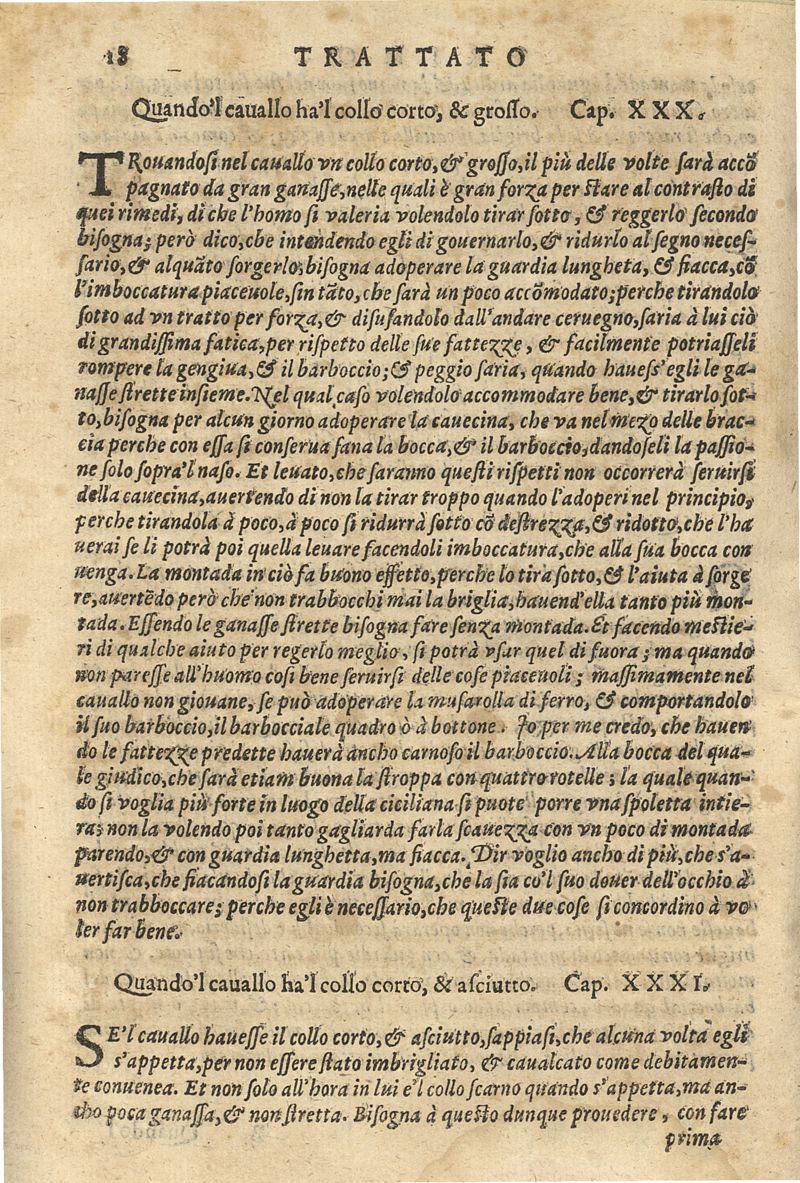 18 TRATTATO
Quando'l cauallo ha'l collo corto, & grosso. Cap. XXX.
TRouandosi nel cauallo vn collo corto, & grosso, il più delle volte sarà accō
pagnato da gran ganasse, nelle quali è gran forza per stare al contrasto di
quei rimedi, di che l'homo si valeria volendolo tirar sotto, & reggerlo secondo
bisogna; però dico, che intendendo egli di gouernarlo, & ridurlo al segno neces-
sario, & alquāto sorgerlo, bisogna adoperare la guardia lungheta, & fiacca, cō
l'imboccatura piaceuole, sin tāto, che sarà un poco accōmodato; perche tirandolo
sotto ad vn tratto per forza, & disusandolo dall'andare ceruegno, saria à lui ciò
di grandissima fatica, per rispetto delle sue fattezze, & facilmente potriasseli
rompere la gengiua, & il barboccio; & peggio saria, quando hauess'egli le ga-
nasse strette insieme. Nel qual caso volendolo accommodare bene, & tirarlo sot-
to, bisogna per alcun giorno adoperare la cauecina, che va nel mezo delle brac-
cia perche con essa si conserua sana la bocca, & il barboccio, dandoseli la passio-
ne solo sopra'l naso. Et leuato, che saranno questi rispetti non occorrerà seruirsi
della cauecina, auertendo di non la tirar troppo quando l'adoperi nel principio,
perche tirandola à poco, à poco si ridurrà sotto cō destrezza, & ridotto, che l'ha
uerai se li potrà poi quella leuare facendoli imboccatura, che alla sua bocca con
uenga. La montada in ciò fa buono effetto, perche lo tira sotto, & l'aiuta à sorge
re, auertēdo però che non trabbocchi mai la briglia, hauend'ella tanto più mon-
tada. Essendo le ganasse strette bisogna fare senza montada. Et facendo mestie-
ri di qualche aiuto per regerlo meglio, si potrà vsar quel di fuora; ma quando
non paresse all'huomo cosi bene seruirsi delle cose piaceuoli; massimamente nel
cauallo non giouane, se può adoperare la musarolla di ferro, & comportandolo
il suo barboccio, il barbocciale quadro ò à bottone. Io per me credo, che hauen
do le fattezze predette hauerà ancho carnoso il barboccio. Alla bocca del qua-
le giudico, che sarà etiam buona la stroppa con quattro rotelle; la quale quan-
do si voglia più forte in luogo della ciciliana si puote porre vna spoletta intie-
ra; non la volendo poi tanto gagliarda farla scauezza con vn poco di montada
parendo, & con guardia lunghetta, ma fiacca. Dir voglio ancho di più, che s'a-
uertisca, che fiacandosi la guardia bisogna, che la sia co'l suo douer dell'occhio à
non trabboccare; perche egli è necessario, che queste due cose si concordino à vo
ler far bene.
Quando'l cauallo ha'l collo corto, & asciutto. Cap. XXXI.
SE'l cauallo hauesse il collo corto, & asciutto, sappiasi, che alcuna volta egli
s'appetta, per non essere stato imbrigliato, & caualcato come debitamen-
te conuenea. Et non solo all'hora in lui e'l collo scarno quando s'appetta, ma an-
cho poca ganassa, & non stretta. Bisogna à questo dunque prouedere, con fare
prima